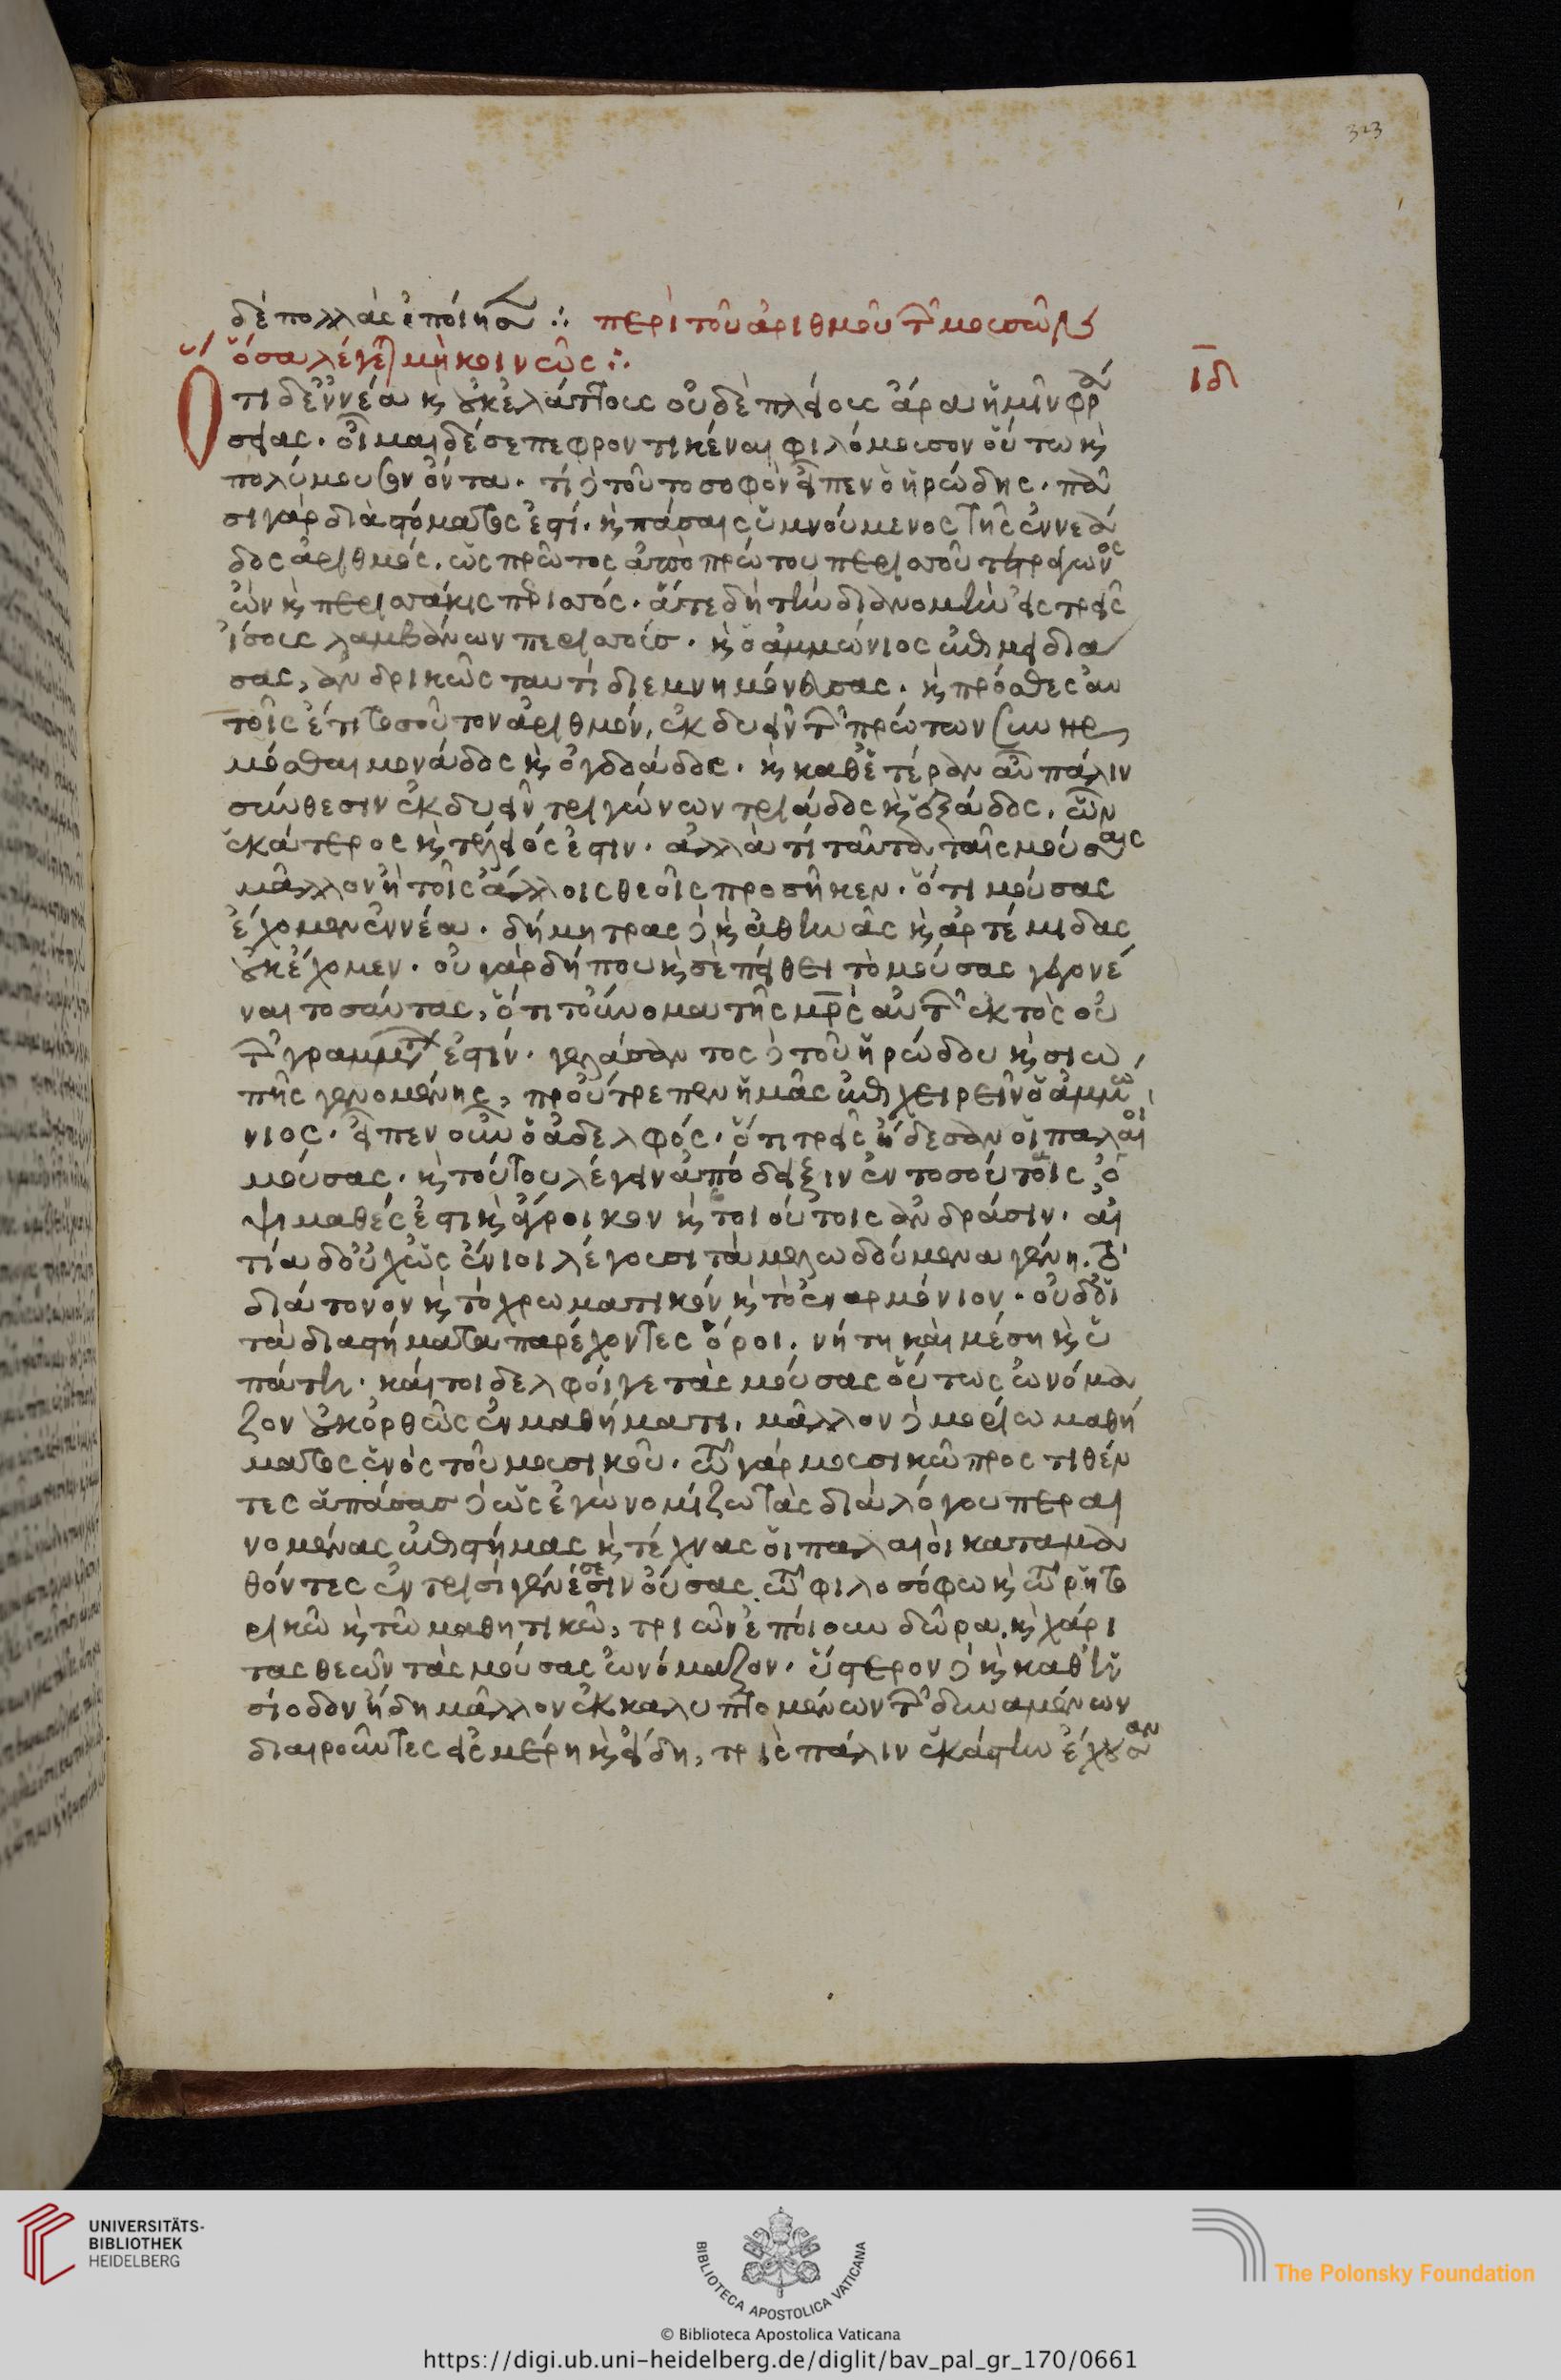 323
δὲ πολλὰς ἐποίησαν ∴ περὶ τοῦ ἀριθμοῦ τῶν μουσῶν
ὅσα λέγεται μὴ κοινῶς ∴
ιδ
Ὅτι δ' ἐννέα καὶ οὐκ ἐλάττους οὐδὲ πλείους ἆρα ἡμῖν φρά
σειας. οἶμαι δέ σε πεφροντικέναι φιλόμουσον οὕτω καὶ
πολύμουσον ὄντα. τί δὲ τοῦτο σοφὸν εἶπεν ὁ ἡρώδης. πᾶ
σι γὰρ διὰ στόματος ἐστί. καὶ πάσαις ὑμνούμενος τῆς ἐννεά
δος ἀριθμός. ὡς πρῶτος ἀπὸ πρώτου περισσοῦ τετράγωνος
ὢν καὶ περισσάκις περισσός. ἅτε δὴ τὴν διανομὴν εἰς τρεῖς
ἴσους λαμβάνων περισσούς. καὶ ὁ ἀμμώνιος ἐπιμειδιά
σας, ἀνδρικῶς ταυτὶ διεμνημόνευσας. καὶ πρόσθες αὐ
τοῖς ἔτι τοσοῦτον ἀριθμόν, ἐκ δυεῖν τῶν πρώτων συνηρ
μόσθαι μονάδος καὶ ὀγδοάδος. καὶ καθ' ἑτέραν αὖ πάλιν
σύνθεσιν ἐκ δυεῖν τριγώνων τριάδος καὶ ἑξάδος. ὧν
ἑκάτερος καὶ τέλειός ἐστιν. ἀλλὰ τί ταῦτα ταῖς μούσαις
μᾶλλον ἢ τοῖς ἄλλοις θεοῖς προσῆκεν. ὅτι μούσας
ἔχομεν ἐννέα. δήμητρας δὲ καὶ ἀθηνᾶς καὶ ἀρτέμιδας
οὐκ ἔχομεν. οὐ γὰρ δήπου καὶ σὲ πείθει τὸ μούσας γεγονέ
ναι τοσαύτας, ὅτι τοὔνομα τῆς μρς αὐτῶν ἐκ τοσού
των γραμμάτων ἐστίν. γελάσαντος δὲ τοῦ ἡρώδου καὶ σιω
πῆς γενομένης, προὔτρεπεν ἡμᾶς ἐπιχειρεῖν ὁ ἀμμώ
νιος. εἶπεν οὖν ὁ ἀδελφός. ὅτι τρεῖς ᾔδεσαν οἱ παλαιοὶ
μούσας. καὶ τούτου λέγειν ἀπόδειξιν ἐν τοσούτοις, ὀ
ψιμαθές ἐστι καὶ ἄγροικον καὶ τοιούτοις ἀνδράσιν. αἰ
τία δ' οὐχ ὡς ἔνιοι λέγουσι τὰ μελῳδούμενα γένη. τὸ
διάτονον καὶ τὸ χρωματικὸν καὶ τὸ ἐναρμόνιον. οὐδ' οἱ
τὰ διαστήματα παρέχοντες ὅροι. νήτη καὶ μέση καὶ ὑ
πάτη. καίτοι δελφοί γε τὰς μούσας οὕτως ὠνόμα
ζον οὐκ ὀρθῶς ἑν μαθήματι. μᾶλλον δὲ μορίω μαθή
ματος ἑνὸς τοῦ μουσικοῦ. τῶ γὰρ μουσικῶ προστιθέν
τες ἁπάσας δὲ ὡς ἐγὼ νομίζω τὰς διὰ λόγου περαι
νομένας ἐπιστήμας καὶ τέχνας οἱ παλαιοὶ καταμα
θόντες ἐν τρισὶ γένεσιν οὔσας τῶ φιλοσόφω καὶ τῶ ρητο
ρικῶ καὶ τῶ μαθητικῶ, τριῶν ἐποίουν δῶρα, καὶ χάρι
τας θεῶν τὰς μούσας ὠνόμαζον. ὕστερον δὲ καὶ καθ' ἡ
σίοδον ἤδη μᾶλλον ἐκκαλυπτομένων τῶν δυναμένων
διαιροῦντες εἰς μέρη καὶ εἴδη, τρὶς πάλιν ἑκάστην ἔχουσαν
UNIVERSITÄTS-
BIBLIOTHEK
HEIDELBERG
BIBLIOTECA APOSTOLICA VATICANA
The Polonsky Foundation
© Biblioteca Apostolica Vaticana
https://digi.ub.uni-heidelberg.de/diglit/bav_pal_gr_170/0661